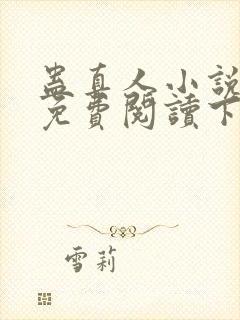 蛊真人小說
免費閱讀下
雪莉